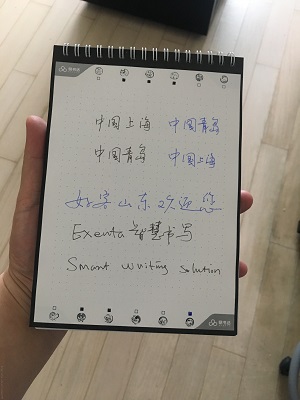 中国上海 中国青岛
中国青岛 中国上海
好客山东欢迎您
Exenta智慧书写
Smart writing slution